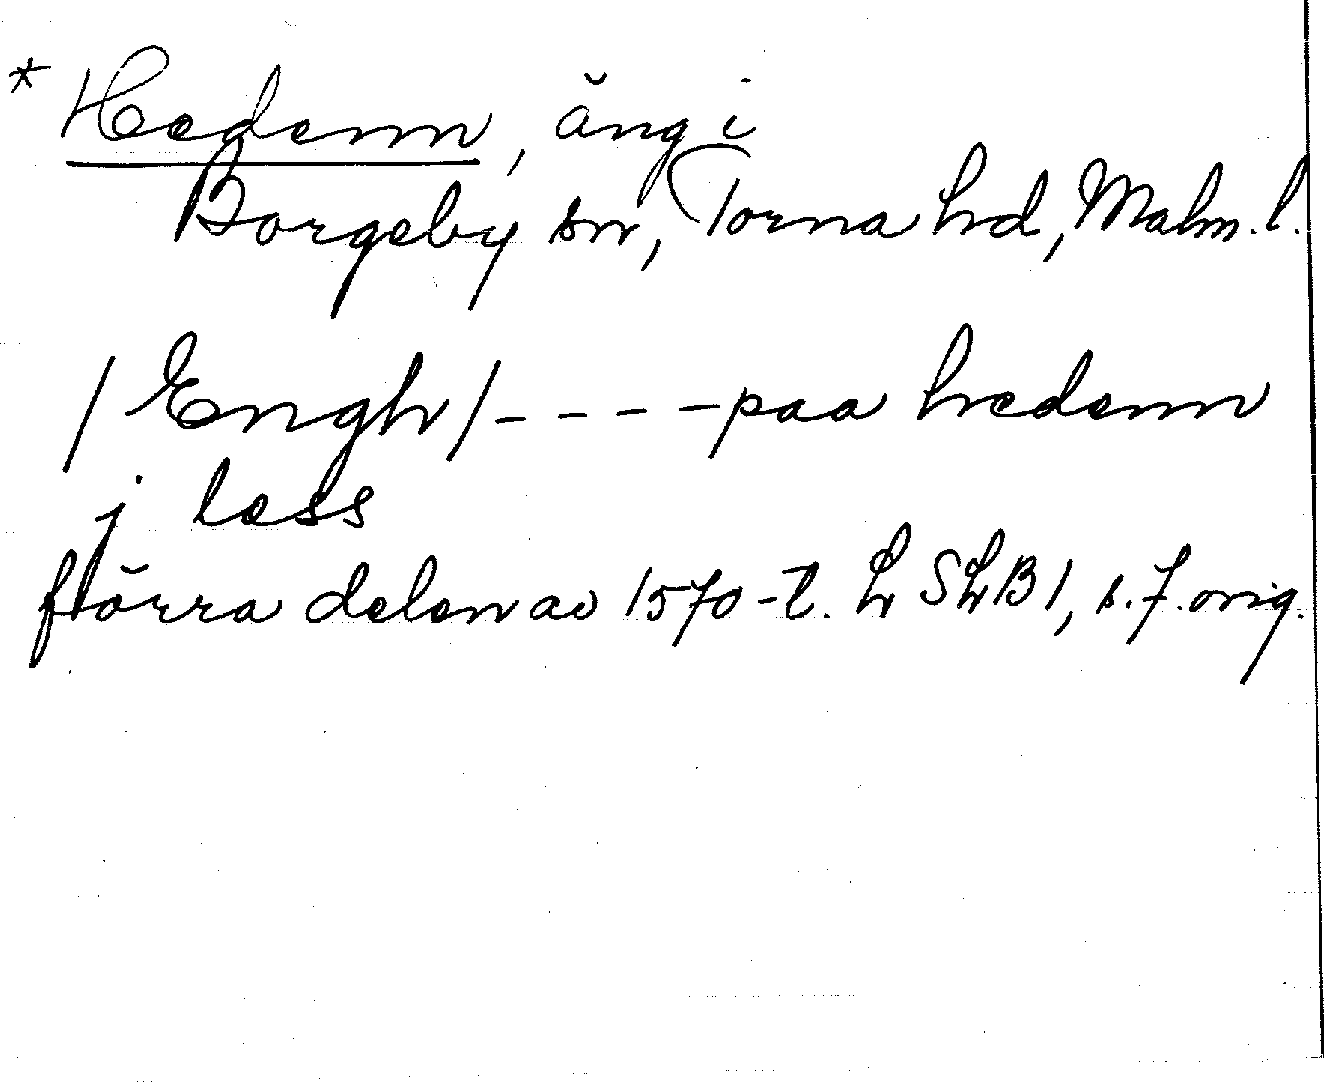 * Hedenn, äng i
Borgeby sn, Torna hd, Malm. l.
/Engh/ - - - - paa hedenn
j less
förra delen av 1570-t. L SLB 1, s. 7. orig.